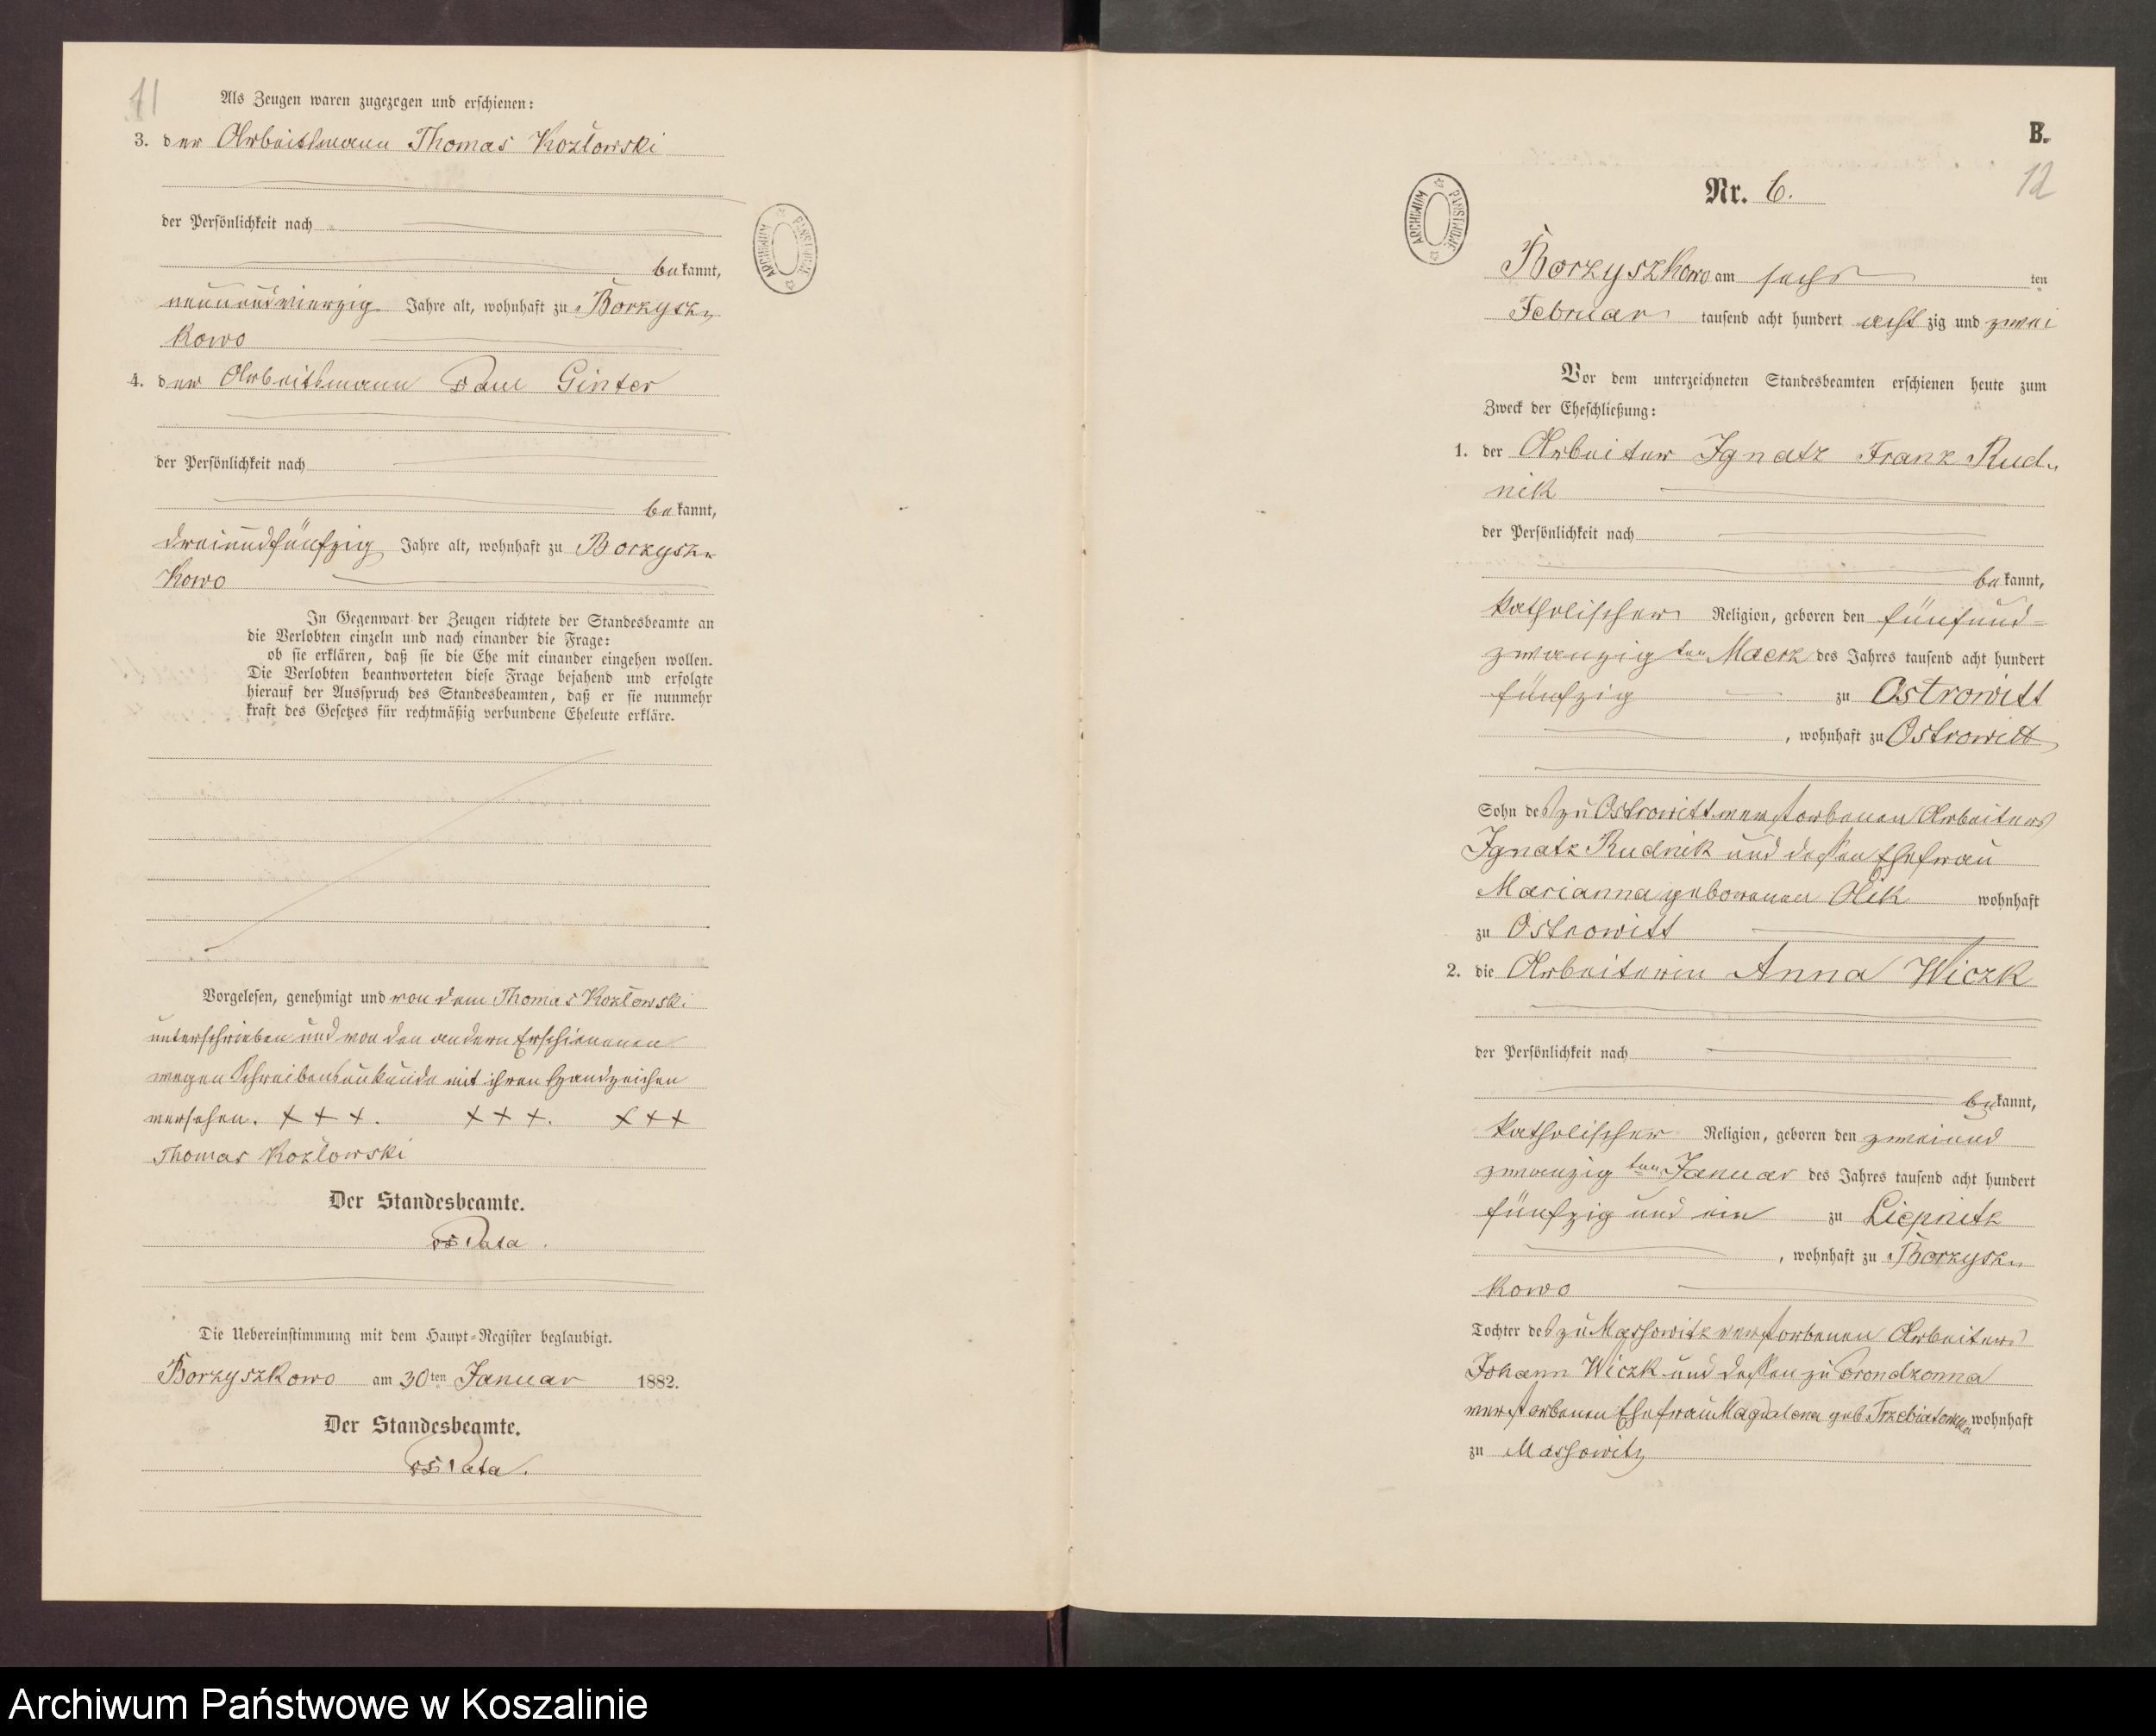 11
Als Zeugen waren zugezogen und erschienen:
3. der Arbeitsmann Thomas Kozłowski
der Persönlichkeit nach
bekannt,
neunundvierzig Jahre alt, wohnhaft zu Borzysz-
kowo
4. der Arbeitsmann Paul Ginter
der Persönlichkeit nach
bekannt,
dreiundfünfzig Jahre alt, wohnhaft zu Borzysz-
kowo
In Gegenwart der Zeugen richtete der Standesbeamte an
die Verlobten einzeln und nach einander die Frage:
ob sie erklären, daß sie die Ehe mit einander eingehen wollen.
Die Verlobten beantworteten diese Frage bejahend und erfolgte
hierauf der Ausspruch des Standesbeamten, daß er sie nunmehr
kraft des Gesetzes für rechtmäßig verbundene Eheleute erkläre.
Vorgelesen, genehmigt und von dem Thomas Kozłowski
unterschrieben und von den andern Erschienenen
wegen Schreibensunkunde mit ihren Handzeichen
versehen. + + + . + + + . + + +
Thomas Kozłowski
Der Standesbeamte.
Pata.
Die Uebereinstimmung mit dem Haupt-Register beglaubigt.
Borzyszkowo am 30ten Januar 1882.
Der Standesbeamte.
Pata.
ARCHIWUM PAŃSTWOWE
B.
12
Nr. 6.
ARCHIWUM PAŃSTWOWE
Borzyszkowo am sechs ten
Februar tausend acht hundert acht zig und zwei
Vor dem unterzeichneten Standesbeamten erschienen heute zum
Zweck der Eheschließung:
1. der Arbeiter Ignatz Franz Rud-
nik
der Persönlichkeit nach
bekannt,
katholischer Religion, geboren den fünfund=
zwanzig ten Maerz des Jahres tausend acht hundert
fünfzig zu Ostrowitt
, wohnhaft zu Ostrowitt
Sohn des zu Ostrowitt verstorbenen Arbeiters
Ignatz Rudnik und dessen Ehefrau
Marianna geborenen Olik wohnhaft
zu Ostrowitt
2. die Arbeiterin Anna Wiczk
der Persönlichkeit nach
bekannt,
katholischer Religion, geboren den zweiund
zwanzig ten Januar des Jahres tausend acht hundert
fünfzig und ein zu Liepnitz
, wohnhaft zu Borzysz-
kowo
Tochter des zu Massowitz verstorbenen Arbeiters
Johann Wiczk und dessen zu Prondzonna
verstorbenen Ehefrau Magdalena geb. wohnhaft
zu Massowitz
Archiwum Państwowe w Koszalinie